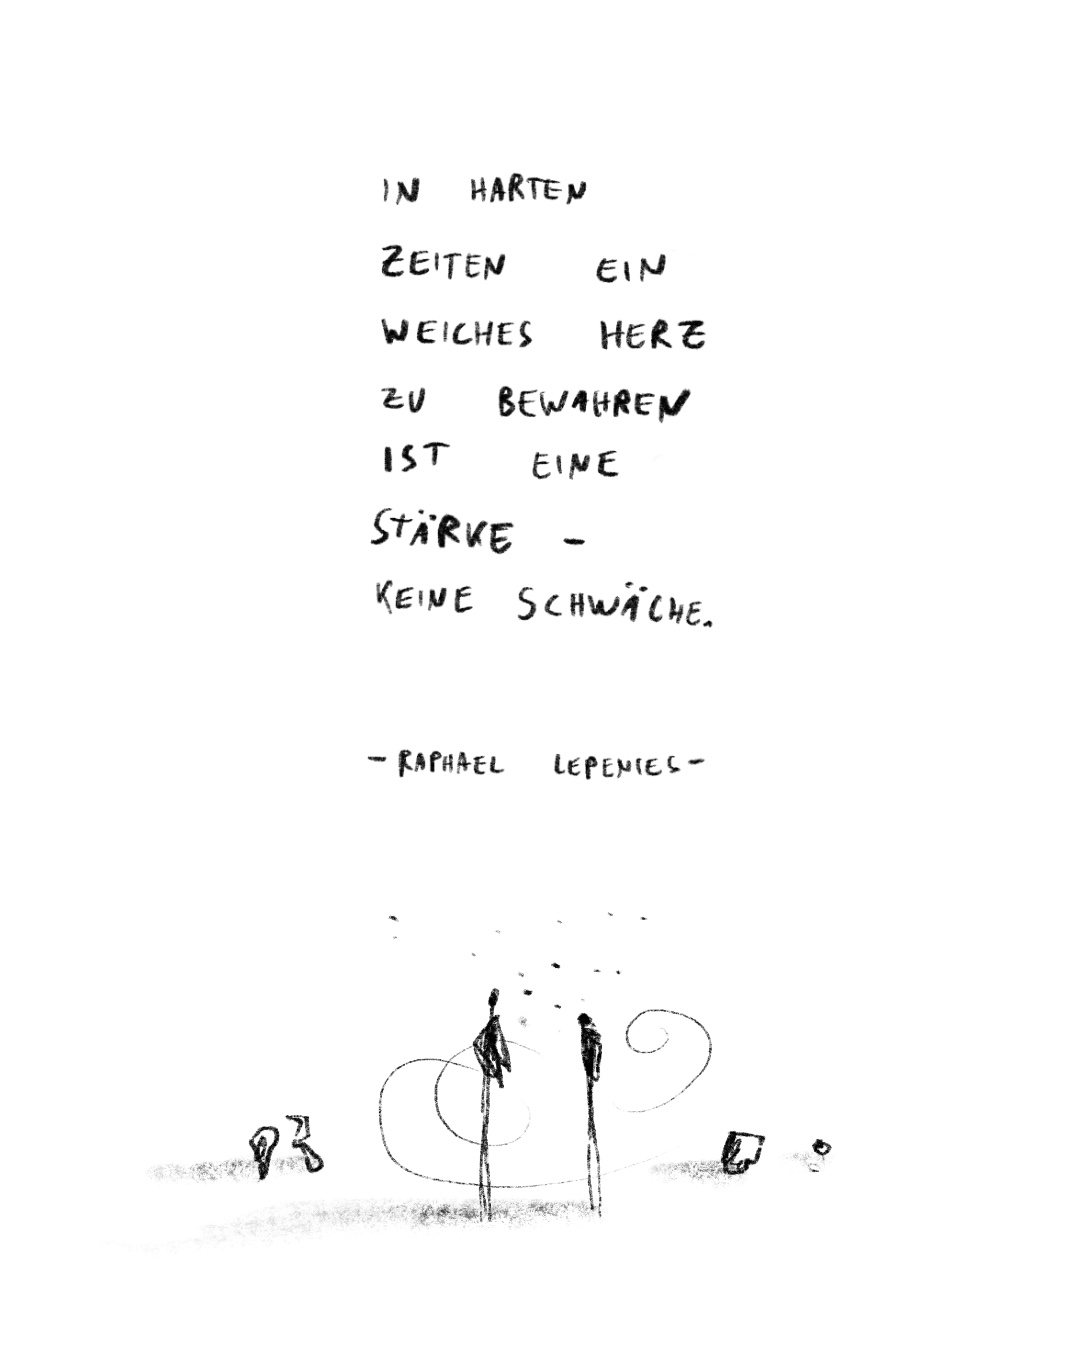 IN HARTEN
ZEITEN EIN
WEICHES HERZ
ZU BEWAHREN
IST EINE
STÄRKE -
KEINE SCHWÄCHE.
- RAPHAEL LEPENIES -